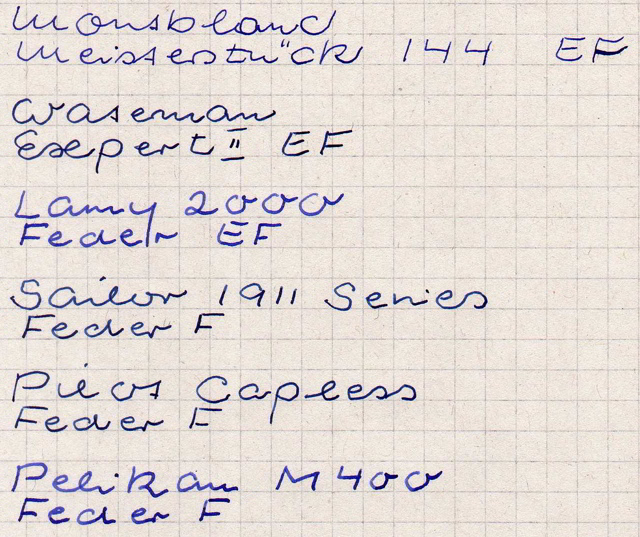 Montblanc
Meisterstück 144 EF
Waterman
Expert II EF
Lamy 2000
Feder EF
Sailor 1911 Series
Feder F
Pilot Capless
Feder F
Pelikan M400
Feder F